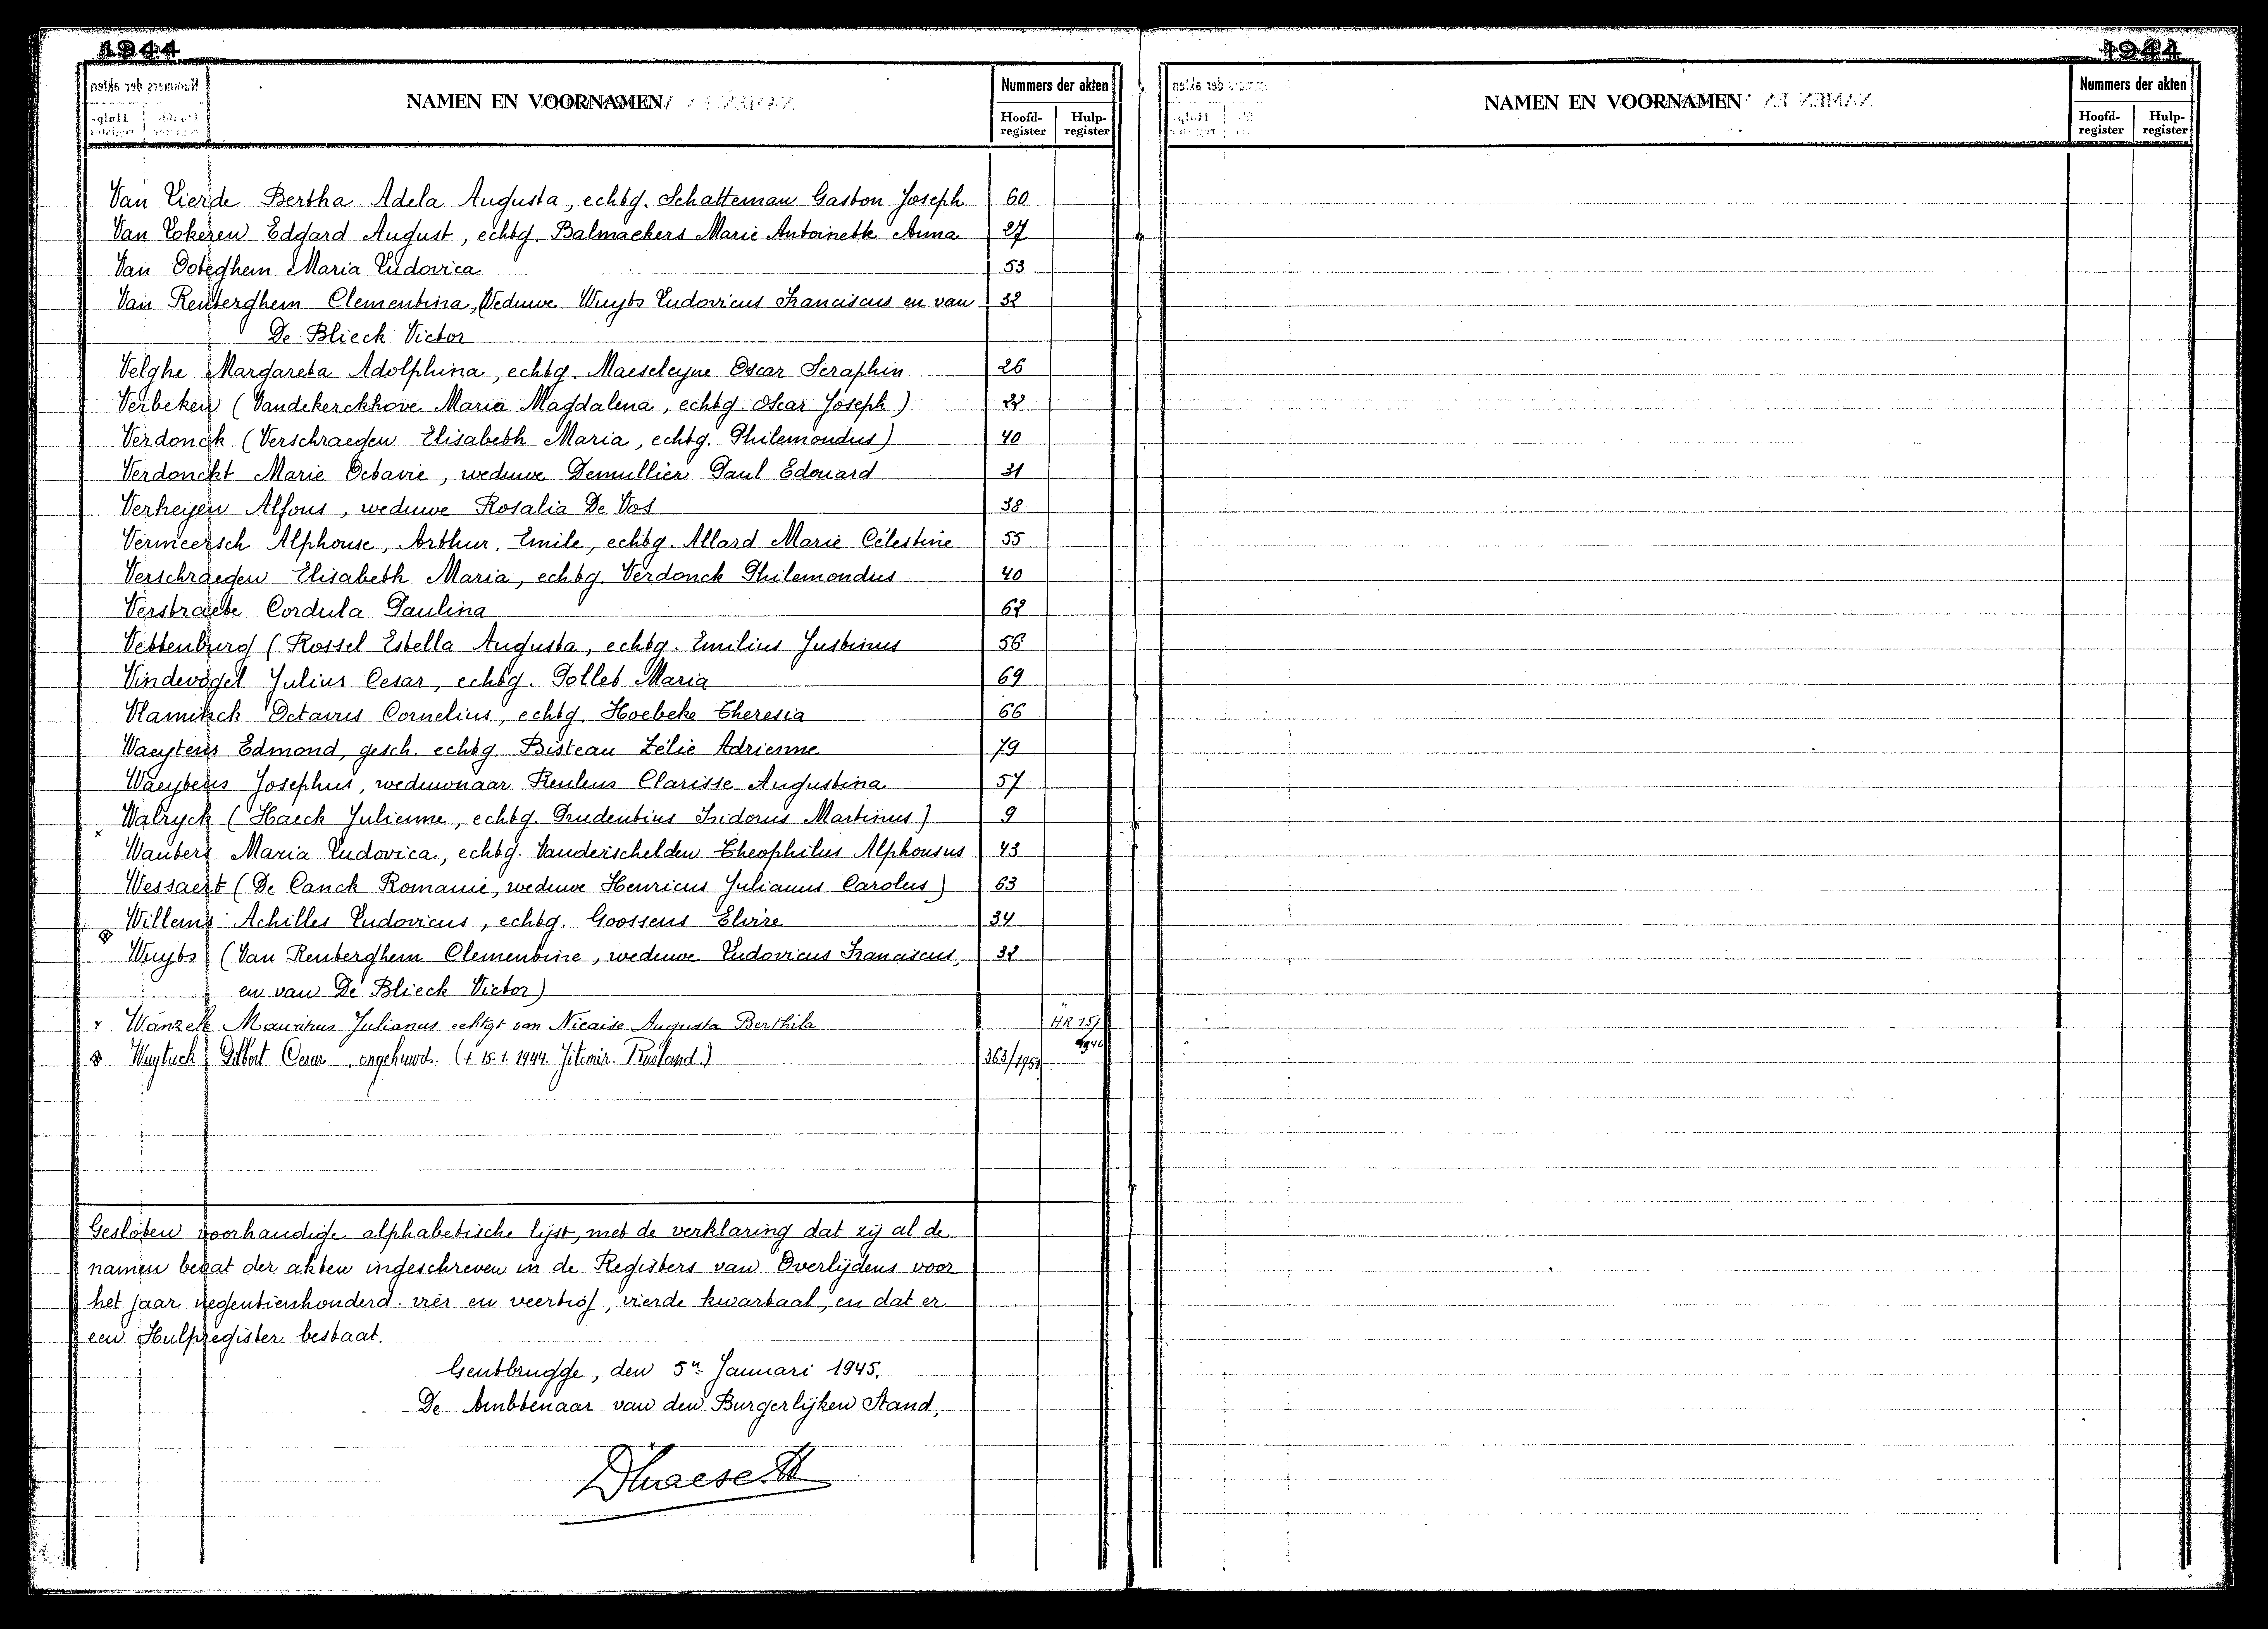 1944
1944
NAMEN EN VOORNAMEN
Nummers der akten
Hoofd-register
Hulp-register
Van Lierde Bertha Adela Augusta, echtg. Schatteman Gaston Joseph 60
Van Lokeren Edgard August, echtg. Balmaekers Marie Antoinette Anna 27
Van Ooteghem Maria Ludovica 53
Van Renterghem Clementina, Weduwe Wuyts Ludovicus Franciscus en van 32
De Blieck Victor
Velghe Margareta Adolphina, echtg. Maeseleyne Oscar Seraphin 26
Verbeken (Vandekerckhove Maria Magdalena, echtg. Oscar Joseph) 22
Verdonck (Verschraegen Elisabeth Maria, echtg. Philemondus) 40
Verdonckt Marie Octavie, weduwe Demullier Paul Edouard 31
Verheyen Alfons, weduwe Rosalia De Vos 38
Vermeersch Alphonse, Arthur, Emile, echtg. Allard Marie Célestine 55
Verschraegen Elisabeth Maria, echtg. Verdonck Philemondus 40
Verstraete Cordula Paulina 62
Vettenburg (Rossel Estella Augusta, echtg. Emilius Justinus 56
Vindevogel Julius Cesar, echtg. Pollet Maria 69
Vlaminck Octavus Cornelius, echtg. Hoebeke Theresia 66
Waeytens Edmond, gesch. echtg. Bisteau Zélie Adrienne 79
Waeytens Josephus, weduwnaar Reulens Clarisse Augustina 57
Walryck (Haeck Julienne, echtg. Prudentius Isidorus Martinus) 9
Wauters Maria Ludovica, echtg. Vanderschelden Theophilus Alphonsus 43
Wessaert (De Canck Romanie, weduwe Henricus Julianus Carolus) 63
Willems Achilles Ludovicus, echtg. Goossens Elvire 34
Wuyts (Van Renterghem Clementine, weduwe Ludovicus Franciscus, 32
en van De Blieck Victor)
Wanzele Mauritius Julianus echtgt van Nicaise Augusta Berthila HR 151 1946
Wuytack Gilbert Cesar, ongehuwd. († 15.1.1944 Jitomir. Rusland.) 363/1951
Gesloten voorhandige alphabetische lijst, met de verklaring dat zij al de
namen bevat der akten ingeschreven in de Registers van Overlijdens voor
het jaar negentienhonderd vier en veertig, vierde kwartaal, en dat er
een Hulpregister bestaat.
Gentbrugge, den 5n Januari 1945.
De Ambtenaar van den Burgerlijken Stand,
NAMEN EN VOORNAMEN
Nummers der akten
Hoofd-register
Hulp-register